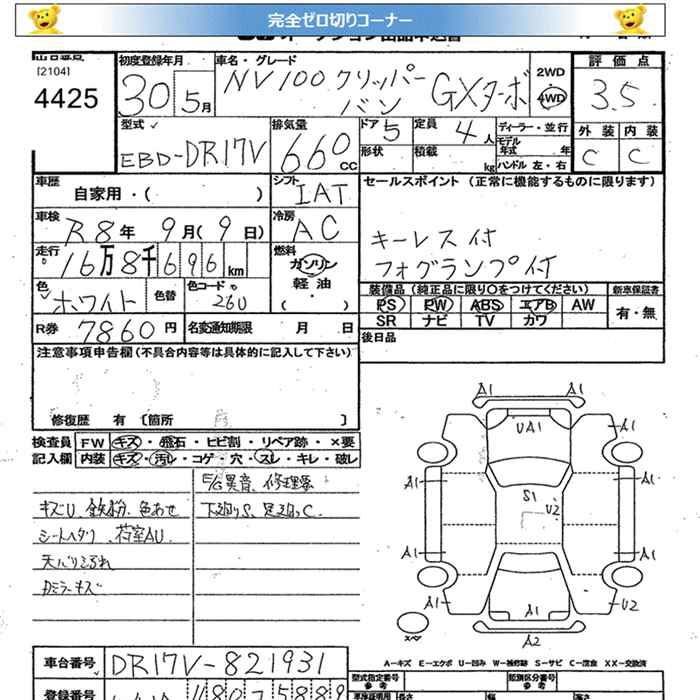 完全ゼロ切りコーナー
[2104]
4425
初度登録年月
30 5月
車名・グレード
NV100 クリッパー
バン GXターボ
2WD
4WD
評価点
3.5
外装 内装
C C
型式
EBD-DR17V
排気量
660 CC
ドア 5
形状
定員 4人
積載 kg
ディーラー・並行
モデル年式 年
ハンドル 左・右
車歴
自家用・( )
シフト
IAT
セールスポイント (正常に機能するものに限ります)
キーレス付
フォグランプ付
車検
R8年 9月(9日)
冷房
AC
走行
16万8千696km
燃料
ガソリン
軽油
( )
色
ホワイト
色替
色コード
26U
装備品(純正品に限り○をつけてください)
PS PW ABS エアB AW
SR ナビ TV カワ
新車保証書
有・無
R券 7860円
名変通知期限 月 日
後日品
注意事項申告欄(不具合内容等は具体的に記入して下さい)
修復歴 有 [箇所 ]
検査員記入欄
FW キズ・飛石・ヒビ割・リペア跡・×要
内装 キズ・汚レ・コゲ・穴・スレ・キレ・破レ
E/G異音、修理要
キズU 鉄粉、色あせ
下廻りS、足廻りC
シートヘタリ、荷室AU
カミラーキズ
A1 A1
UA1
A1 A1
A1 A1
S1
U2
A1 A1
A1 U2
A1
A2
スペア
A-キズ E-エクボ U-凹み W-補修跡 S-サビ C-腐食 XX-交換済
車台番号 DR17V-821931
型式指定番号
参考
類別区分番号
参考
登録番号
長さ 幅 高さ